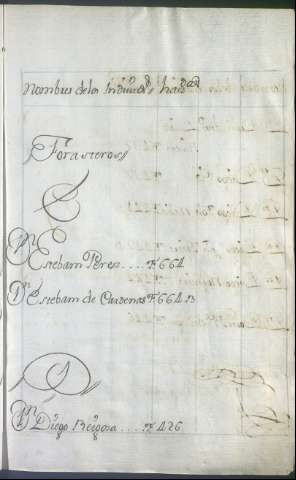 Nombres de los Indiuiduos, haz.das
Forasteros
E
Dn Esteban Perez .... F 664
Dn Esteban de Cardenas F 664 B
D
Dn Diego Reigosa .... F 426